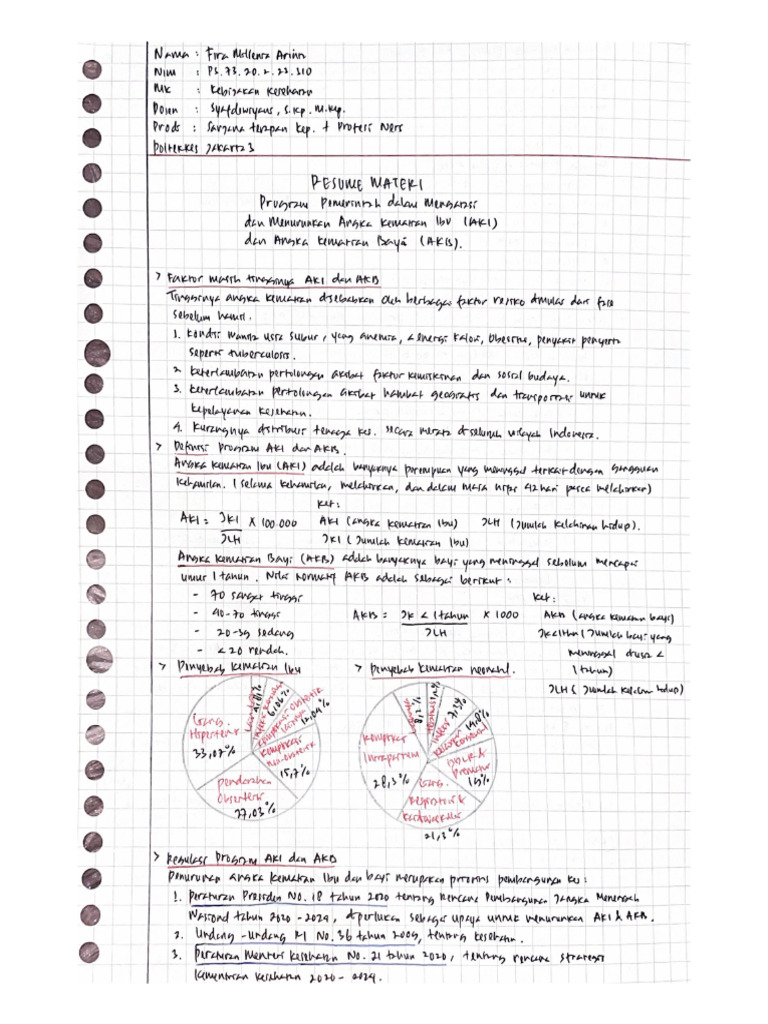 Nama : Fira Millenia Arinn
Nim : P3.73.20.2.23.310
MK : Kebijakan Kesehatan
Dosen : Syafdewiyani, S.Kp. M.Kep.
Prodi : Sarjana terapan Kep. + Profesi Ners
Poltekkes Jakarta 3
RESUME MATERI
Program Pemerintah dalam Mengatasi
dan Menurunkan Angka Kematian Ibu (AKI)
dan Angka Kematian Bayi (AKB).
> Faktor masih tingginya AKI dan AKB
Tingginya angka kematian disebabkan oleh berbagai faktor resiko dimulai dari fase
sebelum hamil.
1. Kondisi wanita usia subur, yang anemia, < energi kalori, obesitas, penyakit penyerta
seperti tuberculosis.
2. Keterlambatan pertolongan akibat faktor kemiskinan dan sosial budaya.
3. Keterlambatan pertolongan akibat hambat geografis dan transportasi untuk
kepelayanan kesehatan.
4. Kurangnya distribusi tenaga kes. secara merata diseluruh wilayah Indonesia.
> Definisi program AKI dan AKB.
Angka Kematian Ibu (AKI) adalah banyaknya perempuan yang meninggal terkait dengan gangguan
kehamilan. (selama kehamilan, melahirkan, dan dalam masa nifas 42 hari pasca melahirkan)
Ket:
AKI = JKI / JLH x 100.000 AKI (angka kematian Ibu) JLH (Jumlah kelahiran hidup).
JKI (Jumlah kematian Ibu)
Angka Kematian Bayi (AKB) adalah banyaknya bayi yang meninggal sebelum mencapai
umur 1 tahun. Nilai normatif AKB adalah sebagai berikut :
- 70 sangat tinggi
- 40-70 tinggi
- 20-39 sedang
- < 20 rendah.
AKB = JK < 1 tahun / JLH x 1000
Ket:
AKB (angka kematian bayi)
JK<1thn (Jumlah bayi yang
meninggal diusia <
1 tahun)
JLH (Jumlah kelahiran hidup)
> Penyebab kematian Ibu
Gang.
Hipertensi
33,07%
Pendarahan
Obstetri
27,03%
Komplikasi
Non-obstetrik
15,7%
Komplikasi obstetrik
lainnya
12,04%
6,06%
4,81%
> Penyebab kematian neonatal.
Komplikasi
Intrapartum
28,3%
Gang.
Respiratori &
Kardiovaskular
21,3%
BBLR &
Prematur
19%
Kelainan
Kongenital
14,8%
Infeksi
7,3%
8,2%
> Regulasi Program AKI dan AKB
Penurunan angka kematian Ibu dan bayi merupakan prioritas pembangunan kes :
1. Peraturan Presiden No. 18 tahun 2020 tentang Rencana Pembangunan Jangka Menengah
Nasional tahun 2020-2024, diperlukan sebagai upaya untuk menurunkan AKI & AKB.
2. Undang-Undang RI No. 36 tahun 2009, tentang kesehatan.
3. Peraturan Menteri Kesehatan No. 21 tahun 2020, tentang rencana strategis
Kementrian Kesehatan 2020-2024.